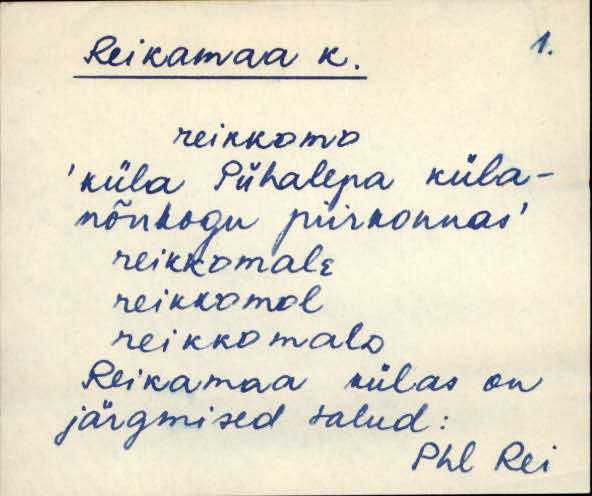 Reikamaa k.
1.
reikkomo
'küla Pühalepa küla-
nõukogu piirkonnas'
reikkomalɛ
reikkomol
reikkomalo
Reikamaa külas on
järgmised talud:
Phl Rei